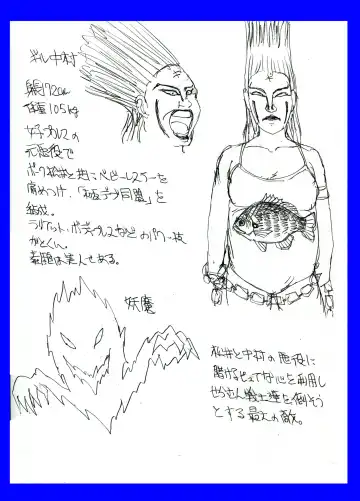 ギル中村
身長172cm
体重105kg
女子プロレスの
元悪役で
ダーク松井と共にベビーレスラーを
痛めつけ、「極悪同盟」を
結成。
ラリアット、ボディプレスなどのパワー技
がとくい。
素顔は美人である。
妖魔
松井と中村の悪役に
賭けるピュアな心を利用し
せらさん戦士達を倒そう
とする最大の敵。